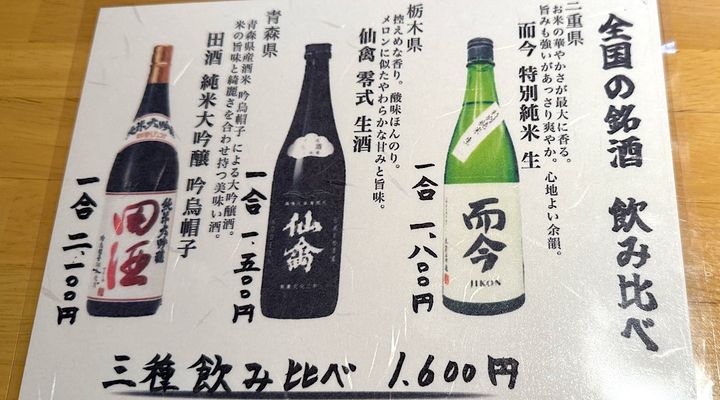 全国の銘酒 飲み比べ
三重県
お米の華やかさが最大に香る。
旨みも強いがあっさり爽やか。心地よい余韻。
而今 特別純米 生
特別純米
而今
JIKON
一合 1,800円
栃木県
控えめな香り。酸味ほんのり。
メロンに似たやわらかな甘みと旨味。
仙禽 零式 生酒
仙禽
一合 1,500円
青森県
青森県産酒米 吟烏帽子 による大吟醸酒。
米の旨味と綺麗さを合わせ持つ美味い酒。
田酒 純米大吟醸 吟烏帽子
純米大吟醸
田酒
純米大吟醸
一合 二,一00円
三種飲み比べ 1,600円